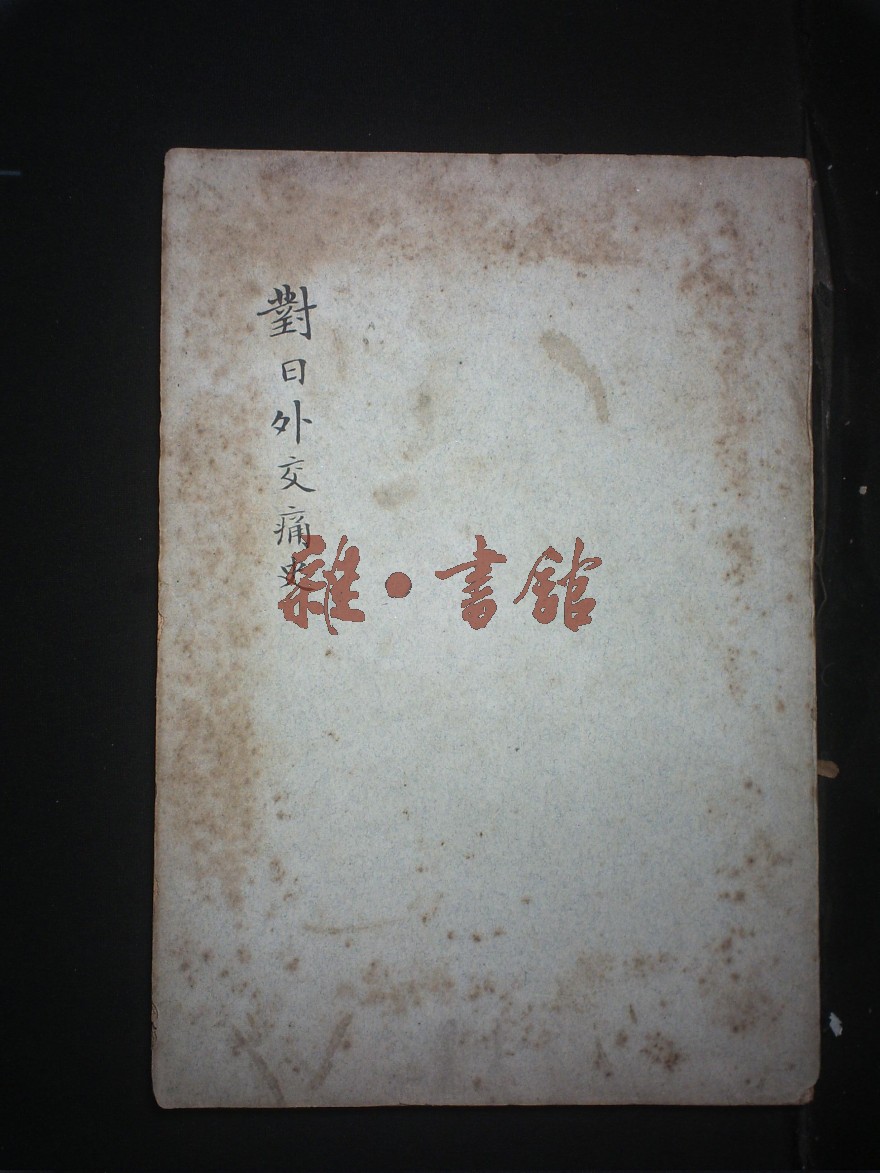 對日外交痛史
雜·書館